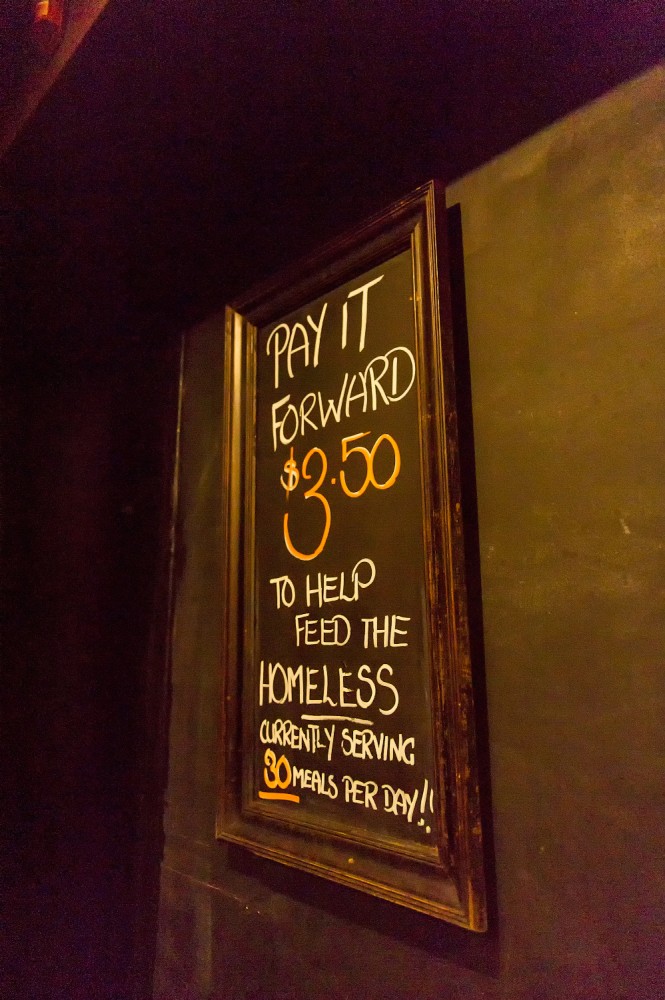 PAY IT
FORWARD
$3.50
TO HELP
FEED THE
HOMELESS
CURRENTLY SERVING
30 MEALS PER DAY!!